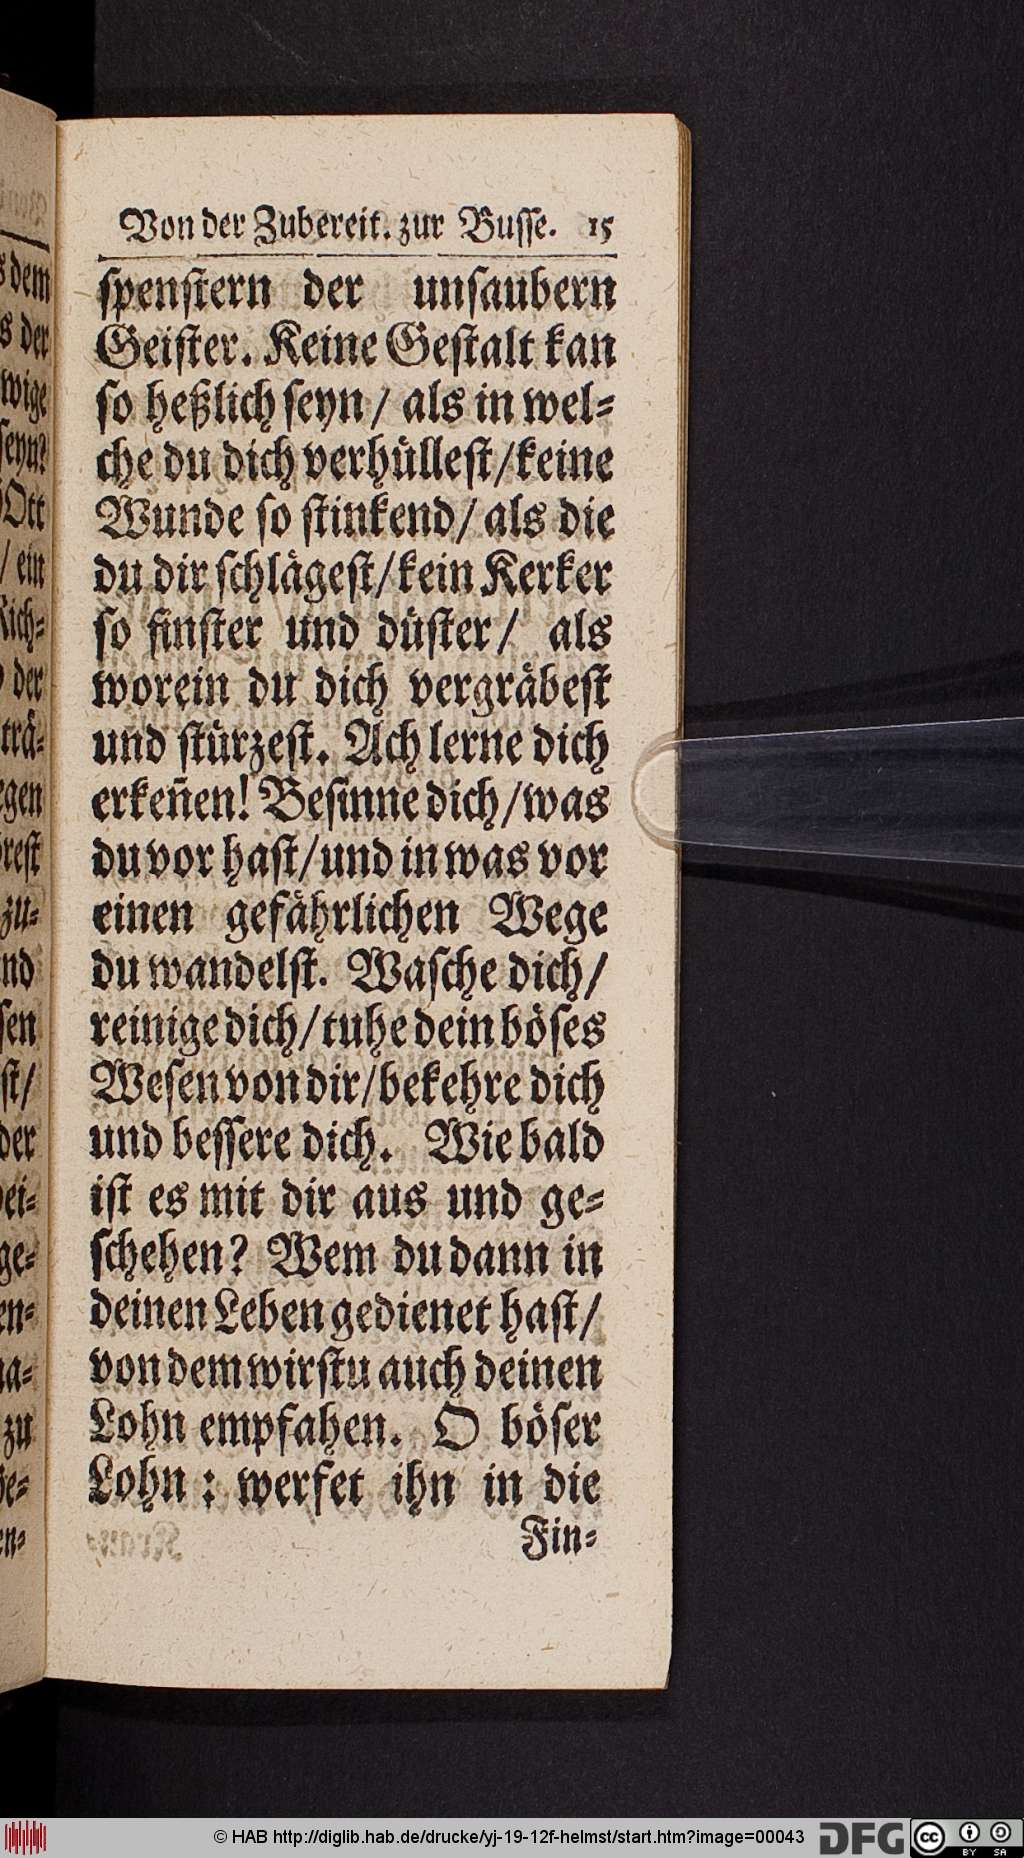 Von der Zubereit. zur Busse. 15
spenstern der unsaubern
Geister. Keine Gestalt kan
so heßlich seyn / als in wel=
che du dich verhüllest / keine
Wunde so stinkend / als die
du dir schlägest / kein Kerker
so finster und düster / als
worein du dich vergräbest
und stürzest. Ach lerne dich
erkeñen! Besinne dich / was
du vor hast / und in was vor
einen gefährlichen Wege
du wandelst. Wasche dich /
reinige dich / tuhe dein böses
Wesen von dir / bekehre dich
und bessere dich. Wie bald
ist es mit dir aus und ge=
schehen? Wem du dann in
deinen Leben gedienet hast /
von dem wirstu auch deinen
Lohn empfahen. O böser
Lohn : werfet ihn in die
Fin=
s dem
s der
wige
seyn?
Ott
/ ein
Rich=
der
trä=
egen
rest
zu=
nd
sen
st /
der
ei=
ge=
en=
a=
zu
e=
en=
© HAB http://diglib.hab.de/drucke/yj-19-12f-helmst/start.htm?image=00043
DFG
cc BY SA